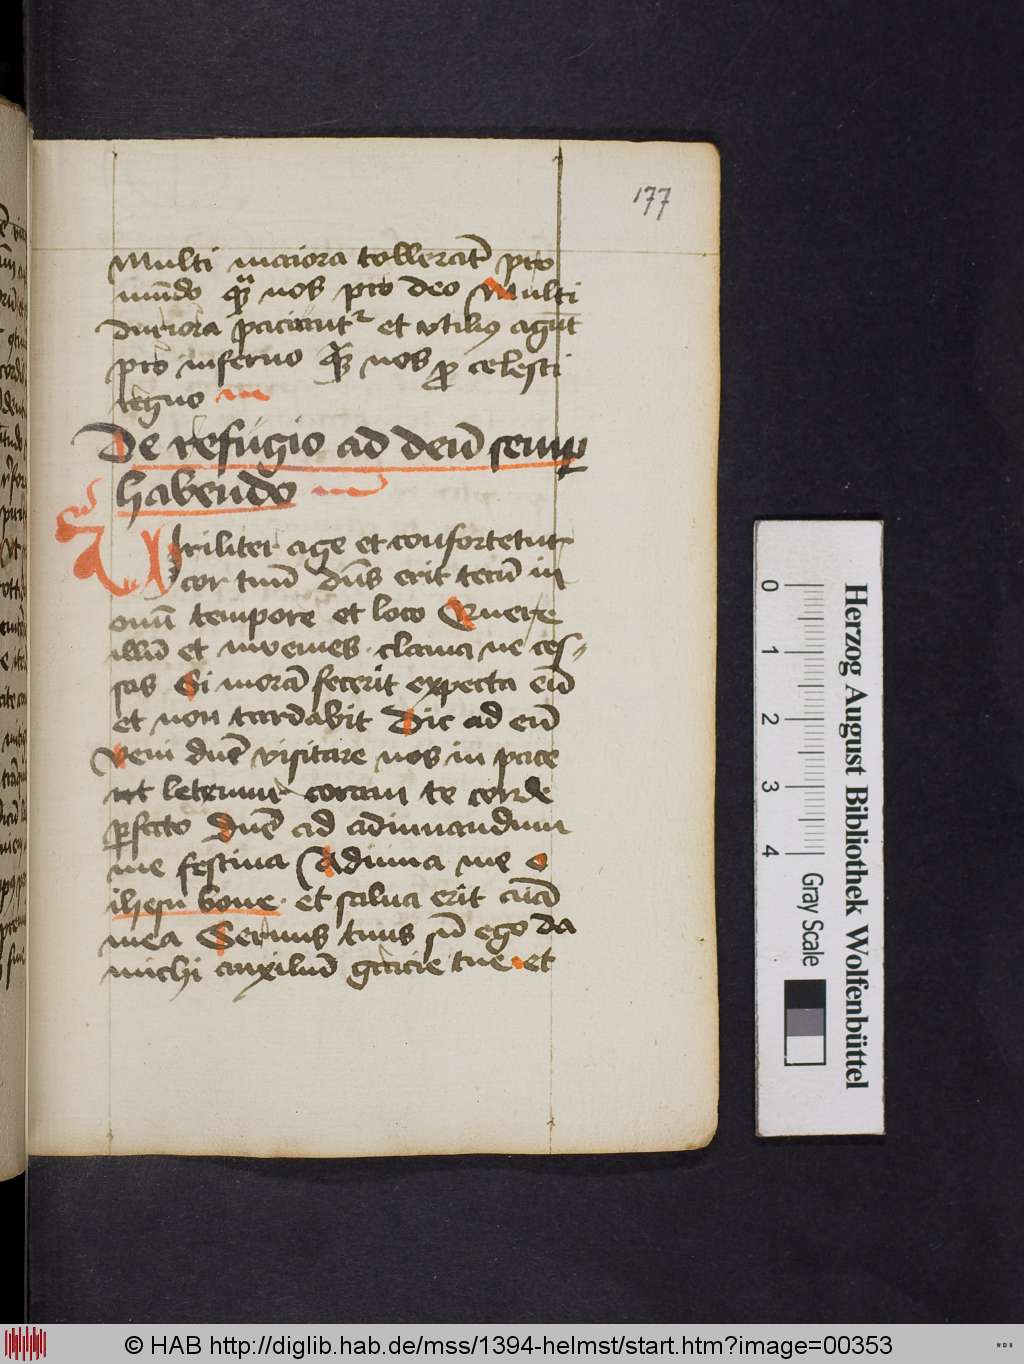 177
Multi maiora tollerāt pro
mūdo quā nos pro deo Multi
duriora paciunt᷑ et vtiliꝰ agūt
pro inferno quā nos ꝓ celesti
regno
De refugio ad deū semꝑ
habendo
Viriliter age et confortetur
cor tuū dn̄s erit tecū in
omī tempore et loco Quere
illū et invenies · clama ne ces-
ses Si morā fecerit expecta eū
et non tardabit Dic ad eū
Veni dn̄e visitare nos in pace
ut letemur coram te corde
ꝑfecto Dn̄e ad adiuuandum
me festina Adiuua me o
ihesu bone · et salua erit aīa
mea Seruus tuus sū ego da
michi auxiliū gracie tue · et
0 1 2 3 4
Gray Scale
Herzog August Bibliothek Wolfenbüttel
© HAB http://diglib.hab.de/mss/1394-helmst/start.htm?image=00353